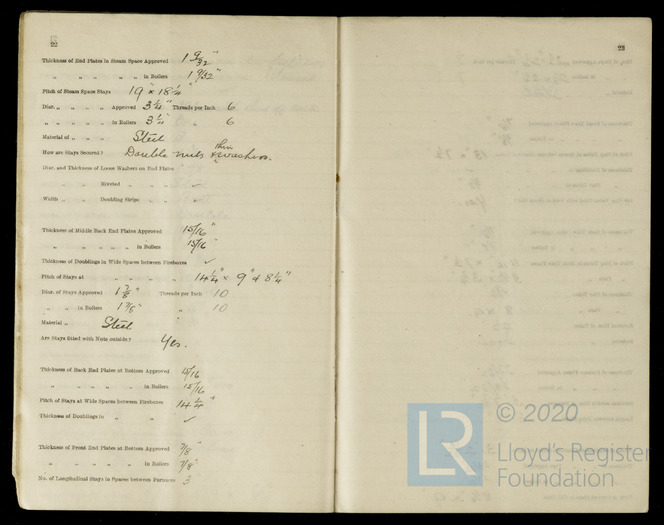 22
Thickness of End Plates in Steam Space Approved 1 9/32"
" " " " " in Boilers 1 9/32"
Pitch of Steam Space Stays 19" x 18 1/4"
Diar. " " " Approved 3 1/4" Threads per Inch 6
" " " " in Boilers 3 1/4" " 6
Material of " " Steel
How are Stays Secured? Double nuts & thin washers.
Diar. and Thickness of Loose Washers on End Plates
" " Riveted " " ✓
Width " " Doubling Strips " " ✓
Thickness of Middle Back End Plates Approved 15/16"
" " " " " in Boilers 15/16"
Thickness of Doublings in Wide Spaces between Fireboxes ✓
Pitch of Stays at " " " " 14 1/4" x 9" & 8 1/4"
Diar. of Stays Approved 1 7/8" Threads per Inch 10
" " in Boilers 1 7/8" " 10
Material " Steel
Are Stays fitted with Nuts outside? Yes.
Thickness of Back End Plates at Bottom Approved 15/16
" " " " " in Boilers 15/16"
Pitch of Stays at Wide Spaces between Fireboxes 14 1/4"
Thickness of Doublings in " " ✓
Thickness of Front End Plates at Bottom Approved 7/8"
" " " " " in Boilers 7/8"
No. of Longitudinal Stays in Spaces between Furnaces 3
23
LR
© 2020
Lloyd's Register
Foundation